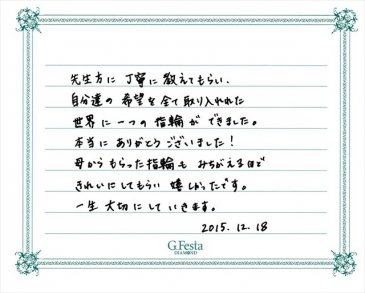 先生方に丁寧に教えてもらい、
自分達の希望を全て取り入れれた
世界に一つの指輪ができました。
本当にありがとうございました!
母からもらった指輪もみちがえるほど
きれいにしてもらい嬉しかったです。
一生大切にしていきます。
2015.12.18
G.Festa
DIAMOND